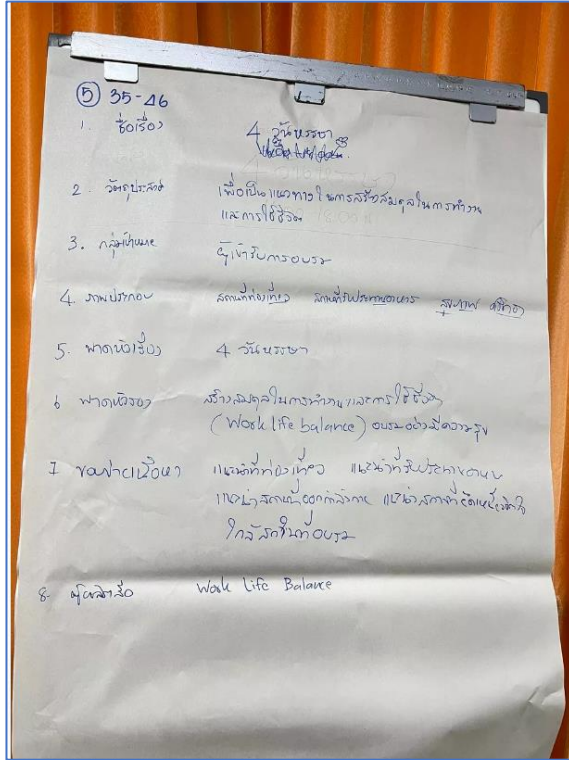 ⑤ 35-46
1. ชื่อเรื่อง 4 วันหรรษา
2. วัตถุประสงค์ เพื่อเป็นแนวทางในการสร้างสมดุลในการทำงาน
และการใช้ชีวิต
3. กลุ่มเป้าหมาย ผู้เข้ารับการอบรม
4. ภาพประกอบ สถานที่ท่องเที่ยว สถานที่รับประทานอาหาร สุขภาพ
5. พาดหัวเรื่อง 4 วันหรรษา
6 พาดหัวรอง สร้างสมดุลในการทำงานและการใช้ชีวิต
(Work life balance) อบรมอย่างมีความสุข
7 ขยายเนื้อหา แนะนำที่ท่องเที่ยว แนะนำที่รับประทานอาหาร
แนะนำสถานที่ออกกำลังกาย แนะนำสถานที่ยึดเหนี่ยวจิตใจ
ใกล้สถานที่อบรม
8. ผู้ผลิตสื่อ Work Life Balance